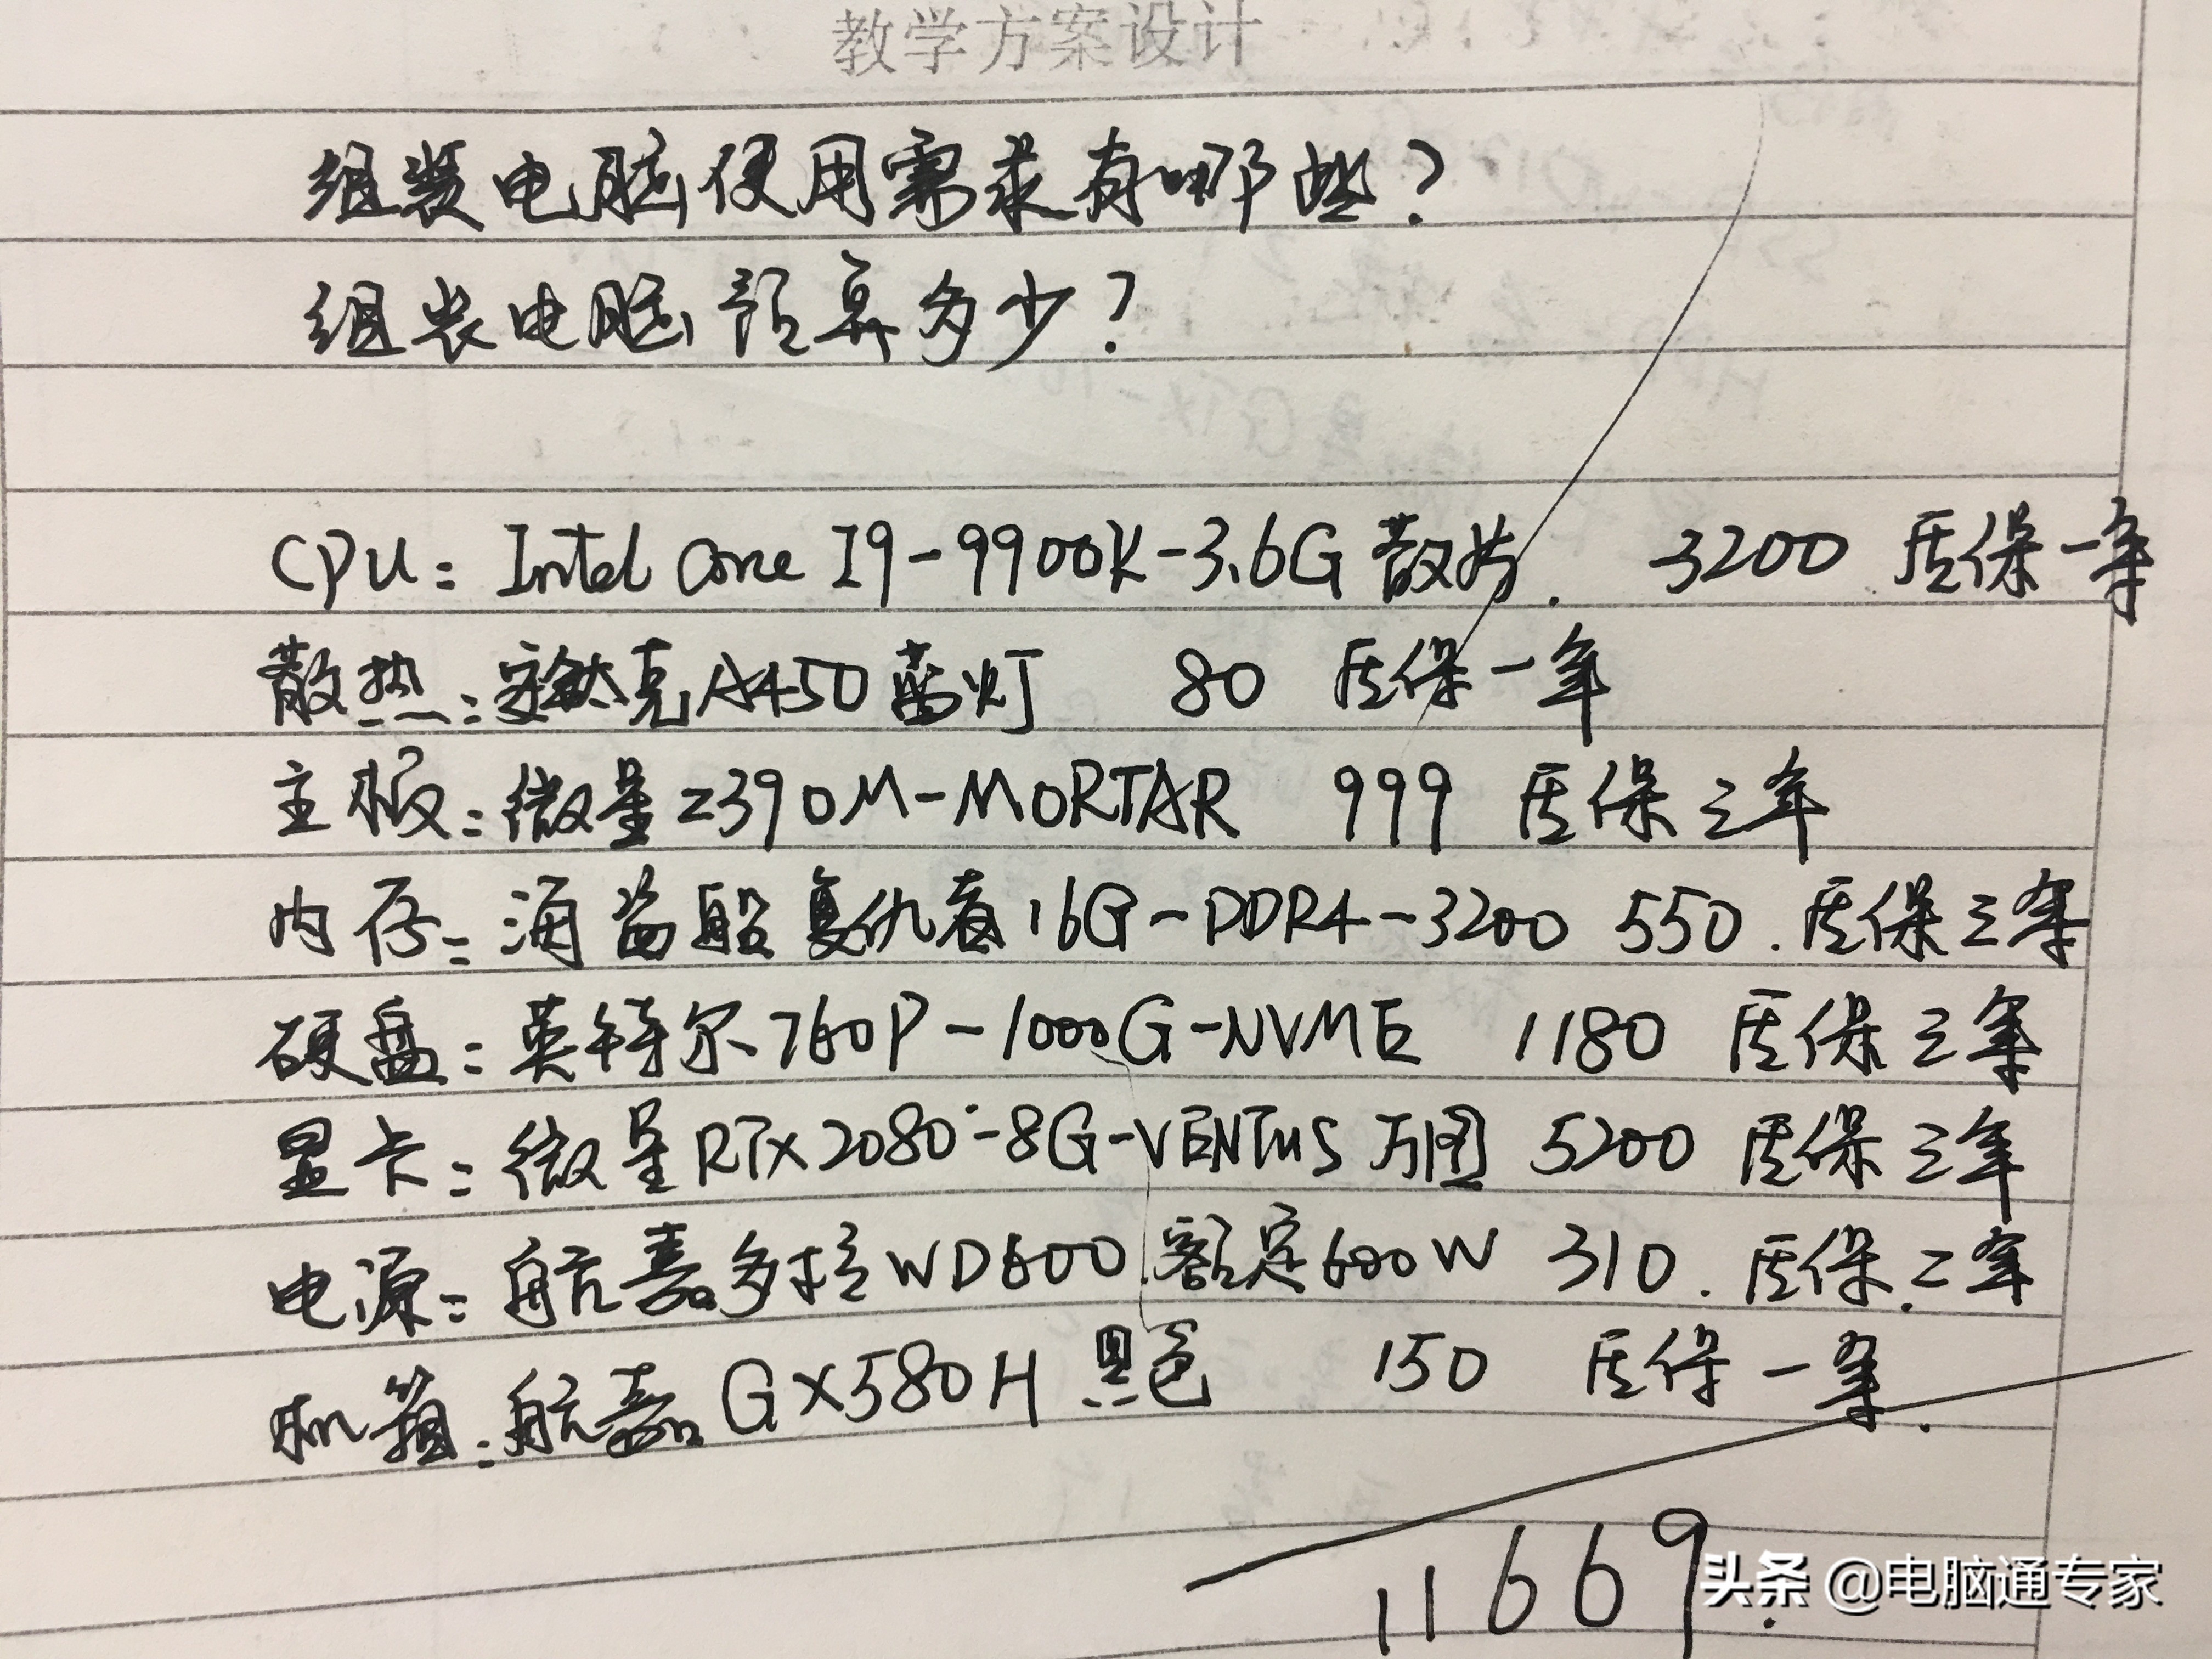 教学方案设计
组装电脑使用需求有哪些？
组装电脑预算多少？
CPU：Intel Core I9-9900K-3.6G 散片. 3200 质保一年
散热：安钛克A450蓝灯 80 质保一年
主板：微星Z390M-MORTAR 999 质保三年
内存：海盗船复仇者16G-DDR4-3200 550. 质保三年
硬盘：英特尔760P-1000G-NVME 1180 质保三年
显卡：微星RTX2080-8G-VENTUS 万图 5200 质保三年
电源：航嘉多核WD600.额定600W 310. 质保二年
机箱：航嘉GX580H 黑色 150 质保一年.
11669.
头条 @电脑通专家